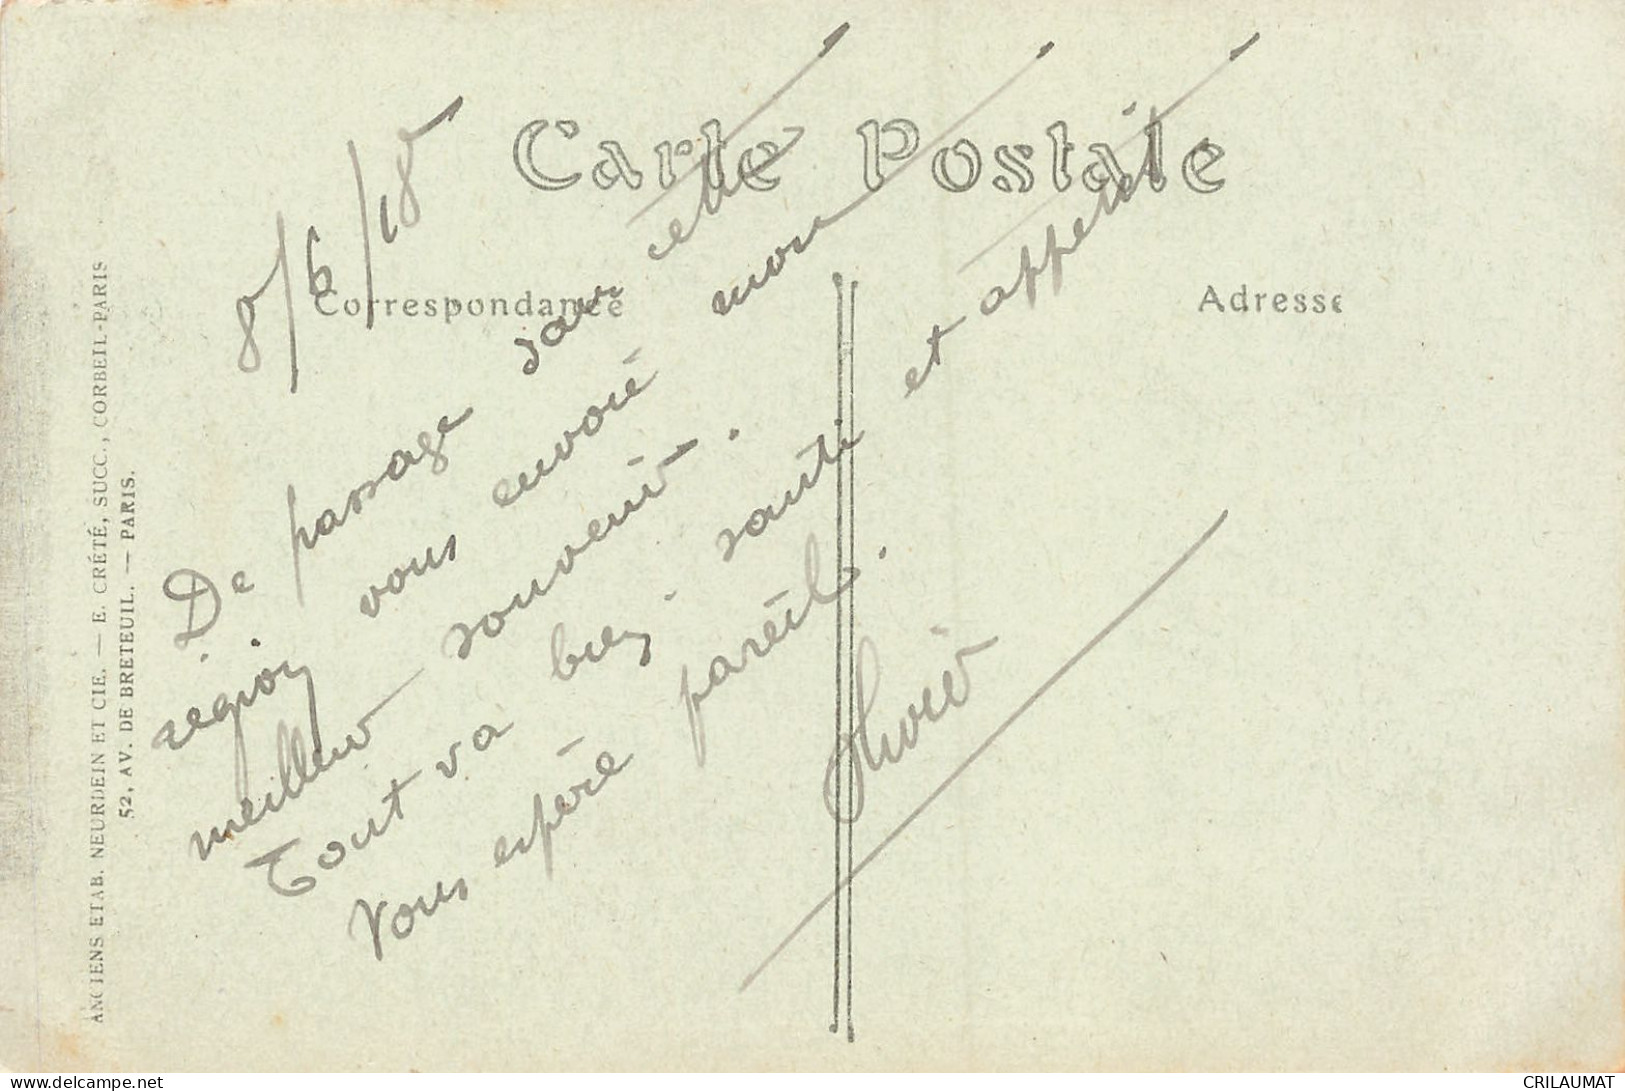 Carte Postale
Correspondance
Adresse
8/6/18
De passage dans cette
région vous envoie mon
meilleur souvenir.
Tout va bien. santé et appétit
Vous espère pareil.
ANCIENS ETAB. NEURDEIN ET CIE. — E. CRÉTÉ, SUCC., CORBEIL-PARIS
52, AV. DE BRETEUIL. — PARIS.
www.delcampe.net
CRILAUMAT